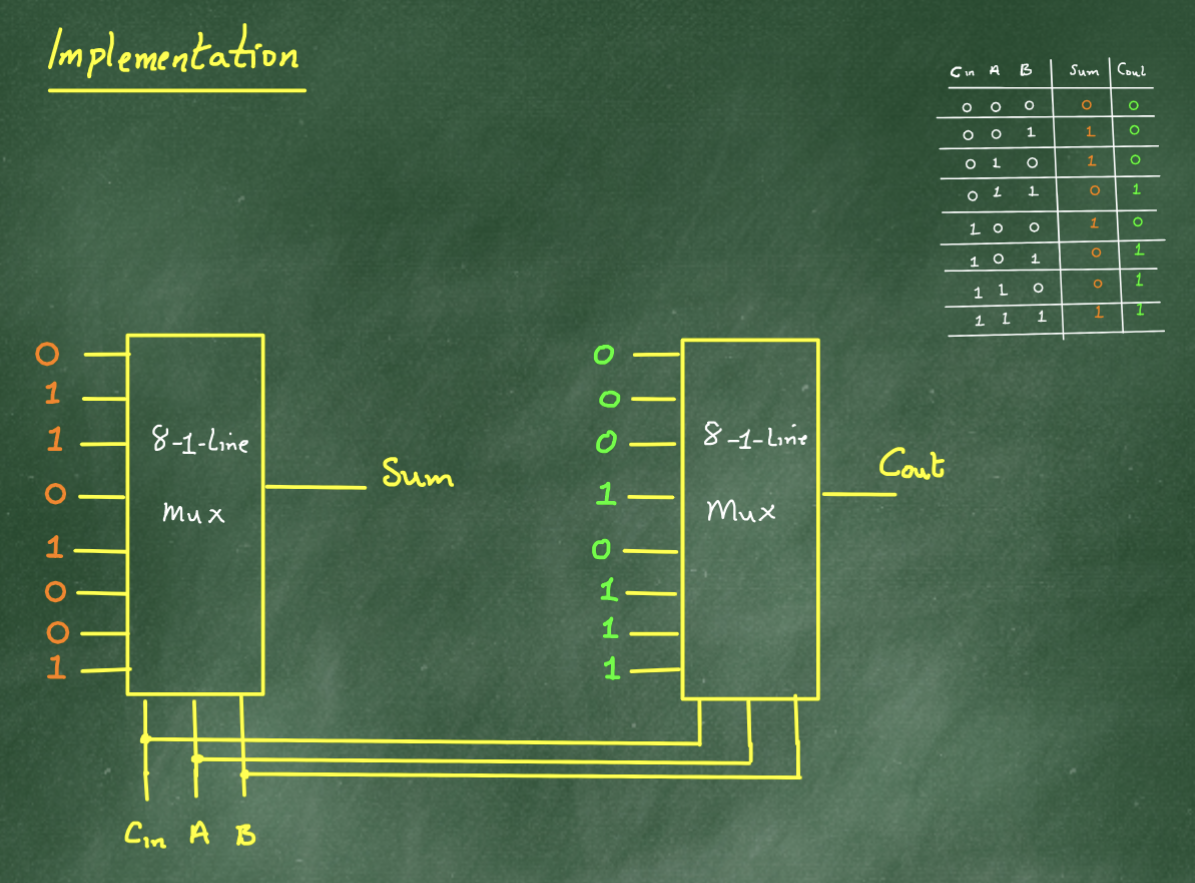 Implementation
Cin A B Sum Cout
0 0 0 0 0
0 0 1 1 0
0 1 0 1 0
0 1 1 0 1
1 0 0 1 0
1 0 1 0 1
1 1 0 0 1
1 1 1 1 1
0
1
1
0
1
0
0
1
8-1-Line
Mux
Sum
0
0
0
1
0
1
1
1
8-1-Line
Mux
Cout
Cin A B